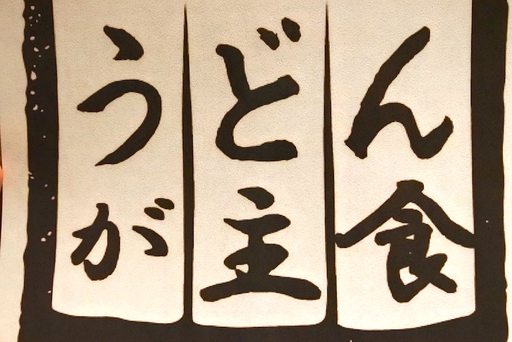 うどん
が主食